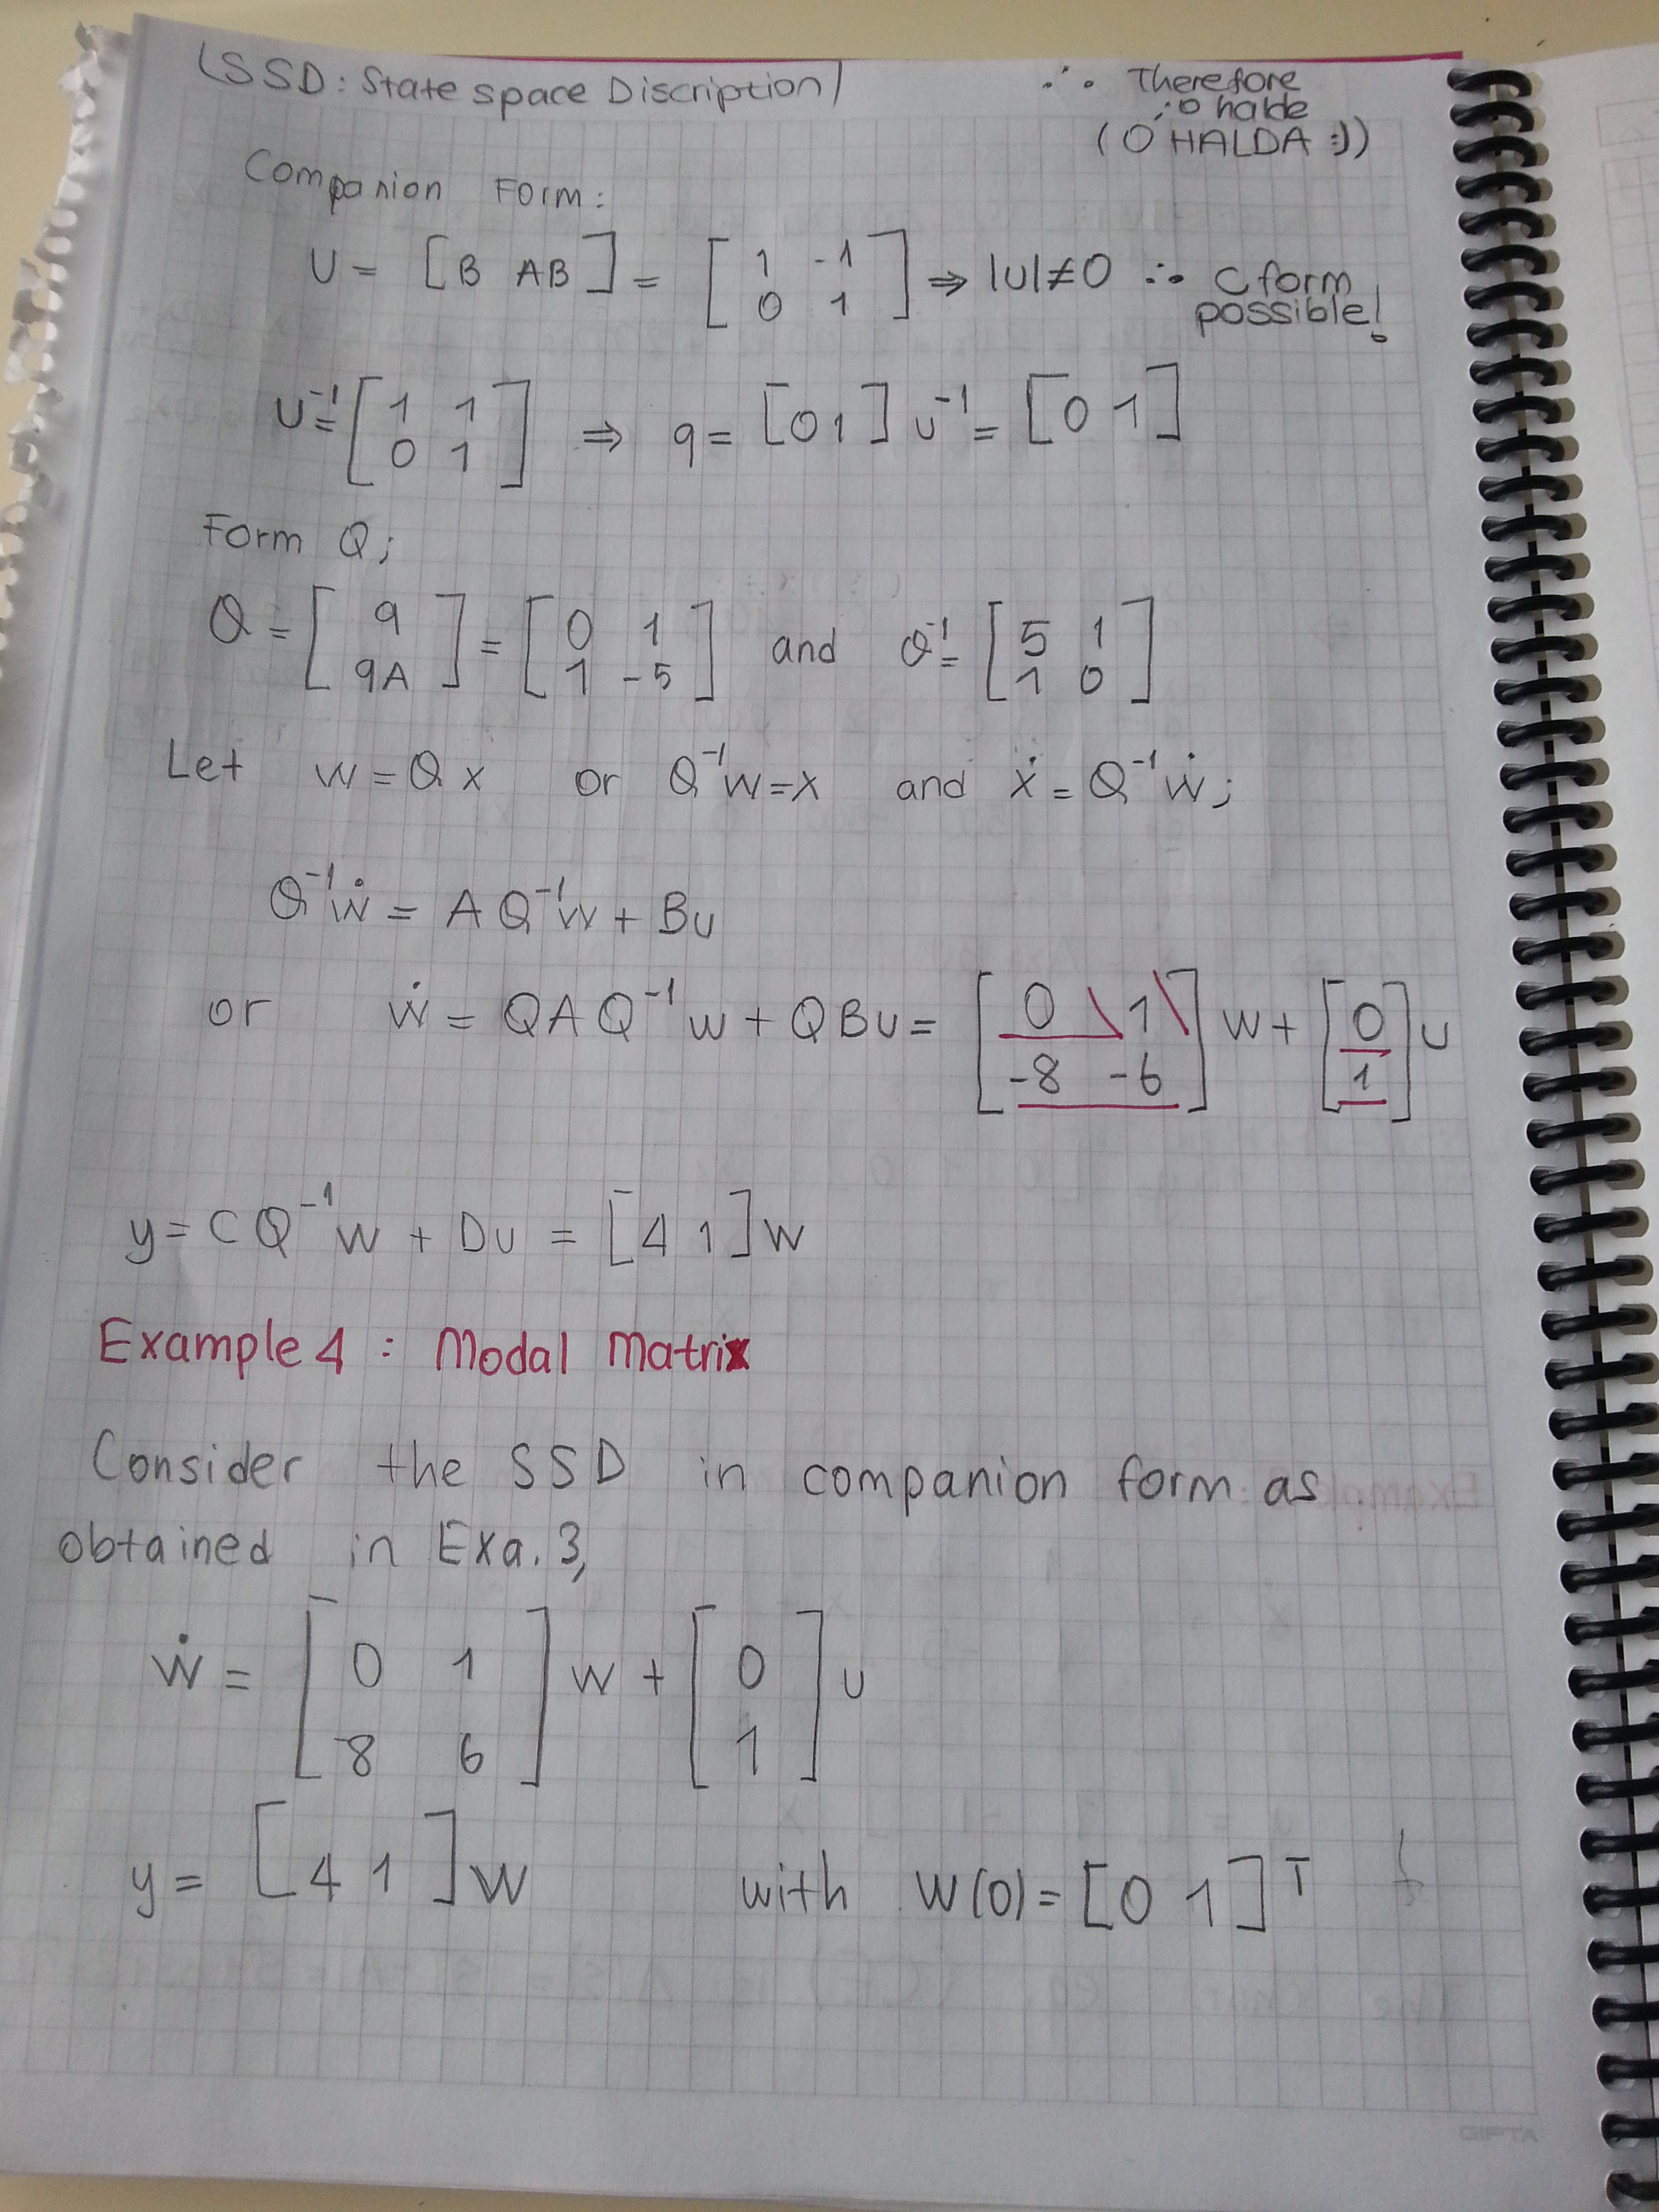 (SSD: State space Discription)
∴ Therefore
:o halde
(O HALDA :))
Companion Form:
U = [B AB] = [1 -1; 0 1] ⇒ |U|≠0 ∴ C form
possible!
U⁻¹ = [1 1; 0 1] ⇒ q = [0 1] U⁻¹ = [0 1]
Form Q;
Q = [q; qA] = [0 1; 1 -5] and Q⁻¹ = [5 1; 1 0]
Let w = Q x or Q⁻¹w = x and ẋ = Q⁻¹ẇ;
Q⁻¹ẇ = A Q⁻¹w + Bu
or ẇ = QAQ⁻¹w + QBu = [0 1; -8 -6] w + [0; 1] u
y = CQ⁻¹w + Du = [4 1] w
Example 4 : Modal Matrix
Consider the SSD in companion form as
obtained in Exa. 3,
ẇ = [0 1; 8 6] w + [0; 1] u
y = [4 1] w with w(0) = [0 1]ᵀ
GIPTA